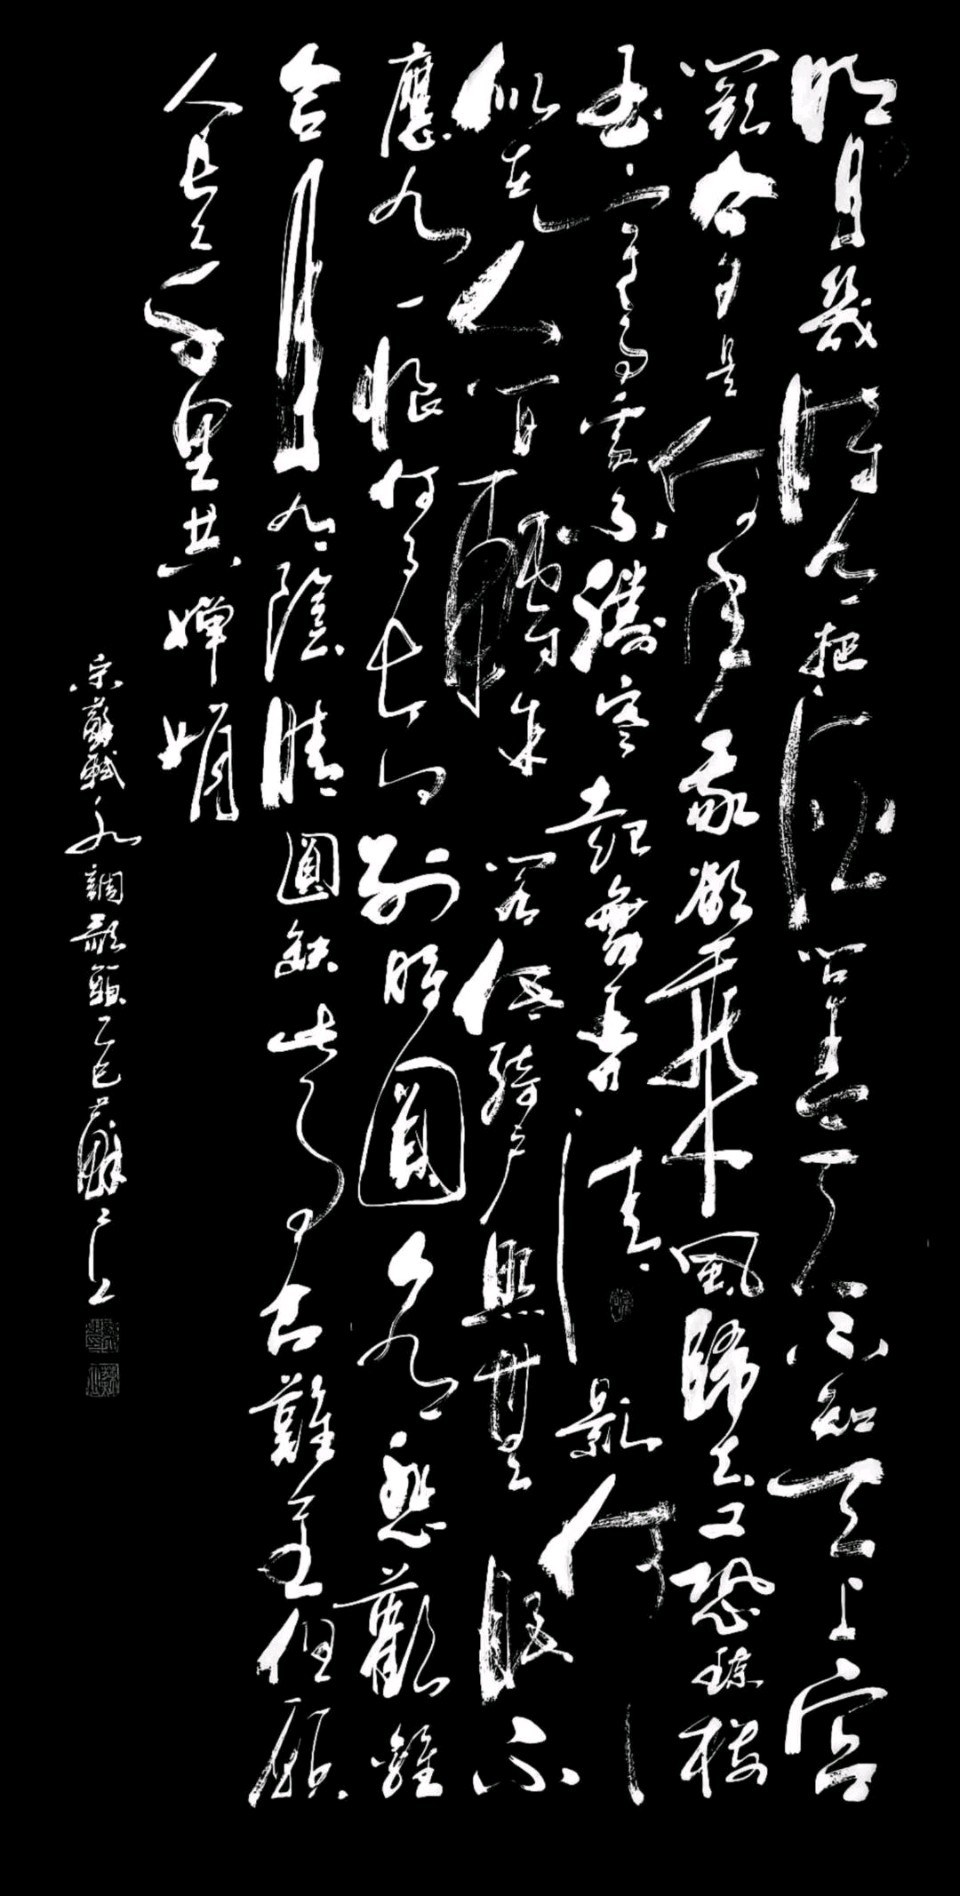 明月幾時有把酒問青天不知天上宮
闕今夕是何年我欲乘風歸去又恐瓊樓
玉宇高處不勝寒起舞弄清影何
似在人間轉朱閣低綺戶照無眠不
應有恨何事長向別時圓人有悲歡離
合月有陰晴圓缺此事古難全但願
人長久千里共嬋娟
宋蘇軾水調歌頭乙巳